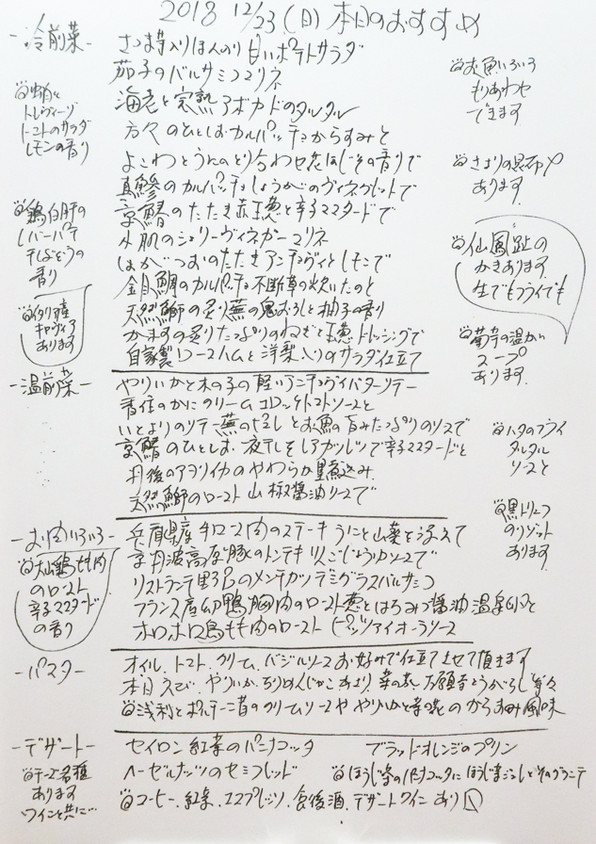 2018 12/23(日)本日のおすすめ
-冷前菜-
さつま芋入りほんのり甘いポテトサラダ
茄子のバルサミコマリネ
海老と完熟アボカドのタルタル
方々のひとしおカルパッチョからすみと
よこわとうにのとり合わせ花ほじその香りで
真鯵のカルパッチョしょうがのヴィネグレットで
京鰆のたたき赤玉葱と辛子マスタードで
水肌のシェリーヴィネガーマリネ
はがつおのたたきアンディヴィとしそこで
金目鯛のカルパッチョ不断草の炊いたのと
天然鰤の炙り蕪の鬼おろしと柚子の香り
かますの炙りたっぷりのねぎと玉葱ドレッシングで
自家製ロースハムと洋梨入りのサラダ仕立て
トレヴィーゾ
トマトのサラダ
レモンの香り
鶏白肝の
レバーパテ
干しぶどうの
香り
イタリア産
キャヴィア
あります
お魚いろいろ
もりあわせ
できます
さよりの昆布〆
あります
仙鳳趾の
かきあります
生でもフライでも
菊芋の温かい
スープ
あります
-温前菜-
やりいかと木の子の軽いアンチョヴィバターソテー
香住のかにクリームコロッケトマトソースと
いとよりのソテー蕪のピュレとお魚の旨みたっぷりのソースで
京鰆のひとしお一夜干しをレアカツレツで辛子マスタードと
丹後のアオリイカのやわらか墨煮込み
天然鰤のロースト山椒醤油ソースで
ハタのフライ
タルタル
ソースと
黒トリュフ
のリゾット
あります
-お肉いろいろ-
兵庫県産牛ロース肉のステーキうにと山菜を添えて
京丹波高原豚のトンテキりんごじょうゆソースで
リストランテ野呂のメンチカツデミグラスバルサミコ
フランス産幼鴨胸肉のロースト葱とはちみつ醤油温泉卵と
ホロホロ鳥もも肉のローストピッツァイオーラソース
大山鶏もも肉
のロースト
辛子マスタード
の香り
-パスタ-
オイル、トマト、クリーム、バジルソースお好みで仕立てさせて頂きます
本日えび、やりいか、ちりめんじゃこ、あさり、菜の花、万願寺とうがらし等々
浅利とポルチーニ茸のクリームソースややりいかと菜の花のからすみ風味
-デザート-
セイロン紅茶のパンナコッタ
ブラッドオレンジのプリン
ヘーゼルナッツのセミフレッド
ほうじ茶のパンナコッタにほうじ茶ジュレとそのグラニテ
コーヒー、紅茶、エスプレッソ、食後酒、デザートワインあり〼
チーズ各種
あります
ワインと共に…